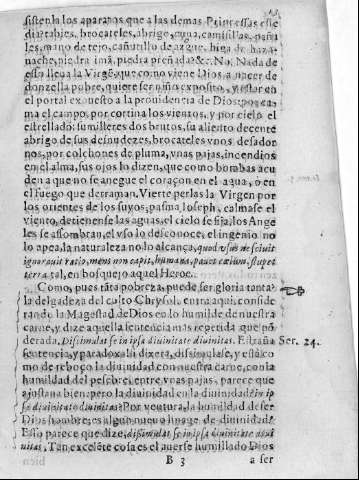 sisten los aparatos que a las demas Princessas
diaz tables, brocateles, abrigo, cuna, camisillas, paña
les, mano de tejo, cañutillo de azogue, higa de haza-
nache, piedra imã, piedra preñada &c. No. Nada de
esso lleua la Virgẽ, que como viene Dios a nacer de
donzella pobre, quiere ser niño exposito, y estar en
el portal expuesto a la prouidencia de Dios: por ca-
ma el campo, por cortina los vientos, y por cielo el
estrellado: sumilleres dos brutos, su aliento decente
abrigo de sus desnudezes, brocateles vnos desador
nos, por colchones de pluma, vnas pajas, incendios
en el alma, sus ojos lo dizen, que como bombas acu
den a que no se anegue el coraçon en el agua, ò en
el fuego que derraman. Vierte perlas la Virgen por
los orientes de los suyos, pasma Ioseph, calmase el
viento, detienense las aguas, el cielo se fixa, los Ange
les se assombran, el vso lo desconoce, el ingenio no
lo apea, la naturaleza no lo alcança, quod vsus nesciuit
ignorauit ratio, mens non capit, humana, pauet cœlum, stupet
terra tal, en bosquejo aquel Heroe.
Como, pues tãta pobreza, puede ser gloria tanta?
la delgadeza del culto Chrysol. entra aqui, conside
rando la Magestad de Dios en lo humilde de nuestra
carne, y dize aquella sentencia mas repetida que põ
derada, Dissimulat se in ipsa diuinitate diuinitas. Estraña
Ser. 24.
sentencia, y paradoxa! si dixera, dissimulase, y
mo de reboço la diuinidad con nuestra carne, con la
humildad del pesebre, entre vnas pajas, parece que
ajustaua bien: pero la diuinidad en la diuinidad? in ip
sa diuinitate diuinitas? Por ventura la humildad de ser
Dios hombre, es algun nueuo linage de diuinidad?
Esso parece que dize, dissimulat se in ipsa diuinitate diui
nitas. Tan excelẽte cosa es el auerse humillado Dios
B 3 a ser